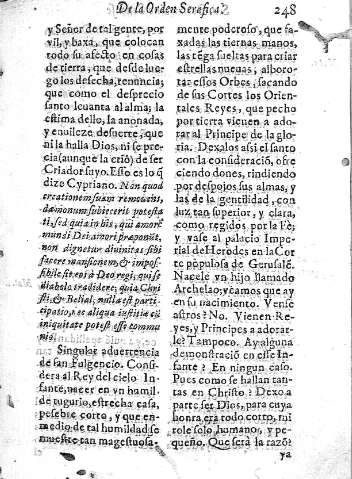 De la Orden Serafica.
248
y Señor de tal gente, por
vil, y baxa, que colocan
todo su afecto en cosas
de tierra, que desde lue-
go los desecha, renuncia;
que como el desprecio
santo leuanta al alma; la
estima dello, la anonada,
y enuilece desuerte, que
ni la halla Dios, ni se pre-
cia (aunque la criò) de ser
Criador suyo. Esso es lo q̃
dixo Cypriano. Non quod
creationem suam remouens,
dæmonum subiecerit potesta
ti, sed quia in his, qui amorẽ
mundi Dei amori præponũt,
non dignetur diuinitas sibi
facere mansionem, & impos-
sibile sit eos à Deo regi, qui se
diabolo tradidere; quia Chri
sti, & Belial, nulla est parti-
cipatio, nec aliqua iustitia cũ
iniquitate potest esse commu
nis.
Singular aduertencia
de san Fulgencio. Consi-
dera al Rey del cielo In-
fante, nacer en vn humil-
de tugurio, estrecha casa,
pesebre corto, y que en-
medio de tal humildad se
muestre tan magestuosa-
mente poderoso, que fa-
xadas las tiernas manos,
las tẽga sueltas para criar
estrellas nueuas; alboro-
tar essos Orbes, sacando
de sus Cortes los Orien-
tales Reyes, que pecho
por tierra vienen a ado-
rar al Principe de la glo-
ria. Dexalos assi el santo
con la consideraciõ, ofre
ciendo dones, rindiendo
por despojos sus almas, y
las de la gentilidad, con
luz tan superior, y clara,
como regidos por la Fè,
y vase al palacio Impe-
rial de Herodes en la Cor
te populosa de Gerusalẽ.
Nacele vn hijo llamado
Archelao; veamos que ay
en su nacimiento. Vense
astros? No. Vienen Re-
yes, y Principes a adorar-
le? Tampoco. Ay alguna
demonstració en esse In-
fante? En ningun caso.
Pues como se hallan tan-
tas en Christo? Dexo a
parte ser Dios, para cuya
honra era todo corto, mi
role solo humano, y pe-
queño. Que serà la razõ?
ya